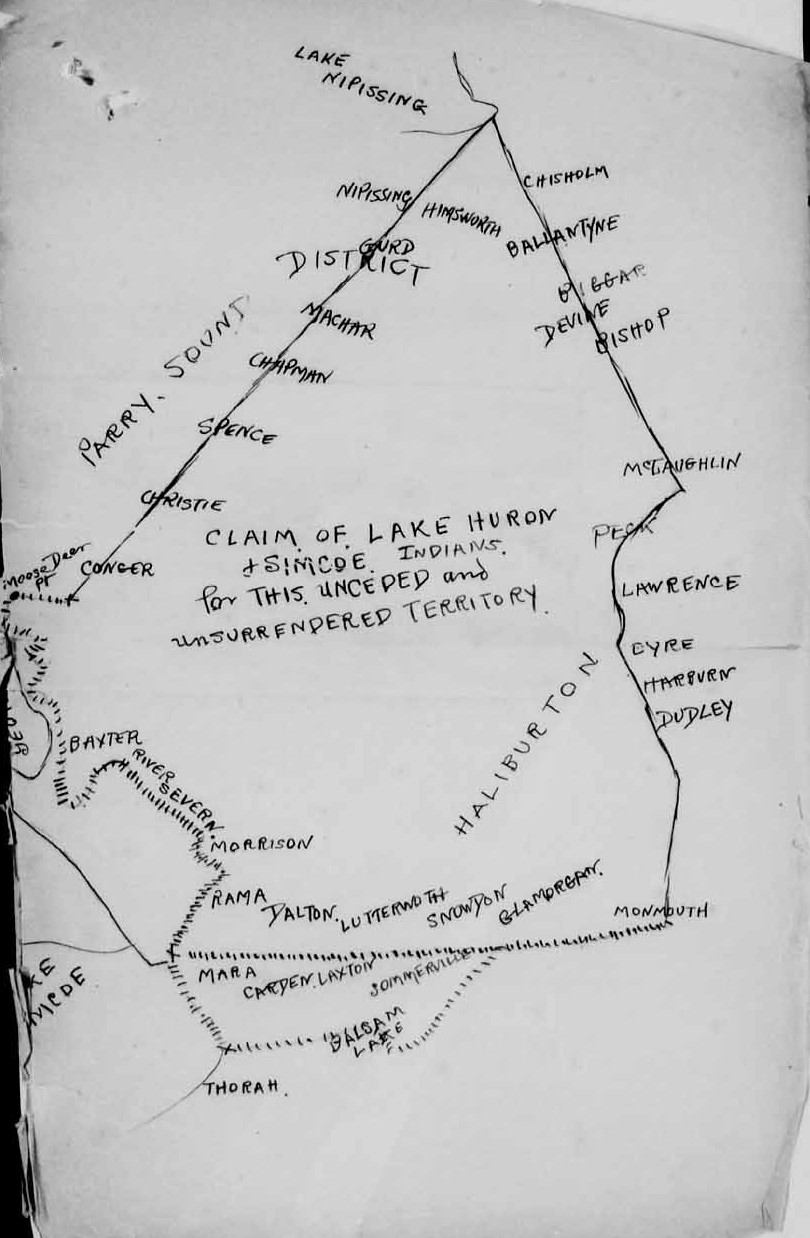 LAKE
NIPISSING
CHISHOLM
NIPISSING
HIMSWORTH
BALLANTYNE
GURD
DISTRICT
BIGGAR
DEVINE
BISHOP
MACHAR
PARRY. SOUND
CHAPMAN
SPENCE
McLAUGHLIN
CHRISTIE
PECK
CLAIM OF LAKE HURON
+ SIMCOE. INDIANS.
for THIS. UNCEDED and
unSURRENDERED TERRITORY.
Moose Deer
Pt
CONGER
LAWRENCE
EYRE
HARBURN
DUDLEY
HALIBURTON
BAXTER
RIVER
SEVERN.
MORRISON
RAMA
DALTON.
LUTTERWOTH
SNOWDON
GLAMORGAN.
MONMOUTH
MARA
CARDEN.
LAXTON
SOMMERVILLE
KE
MCOE
BALSAM
LAKE
THORAH.